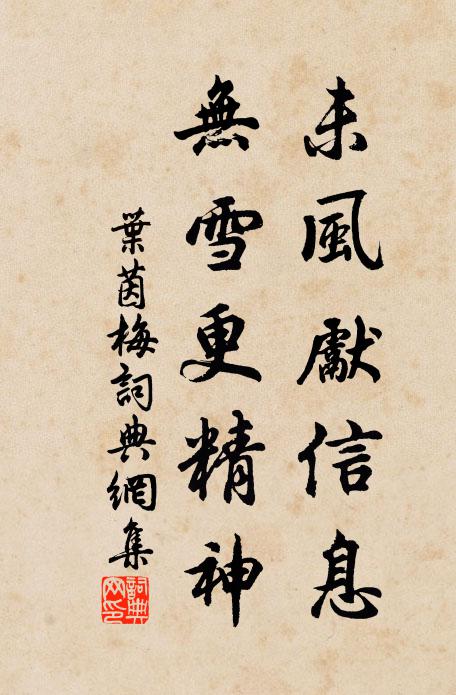 未風獻信息
無雪更精神
葉茵梅詞典網集
詞典網印